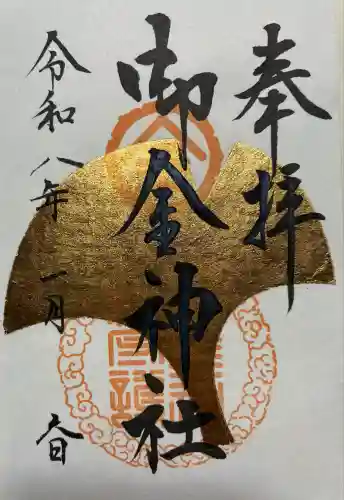 奉拝
御金神社
令和八年 一月 六日